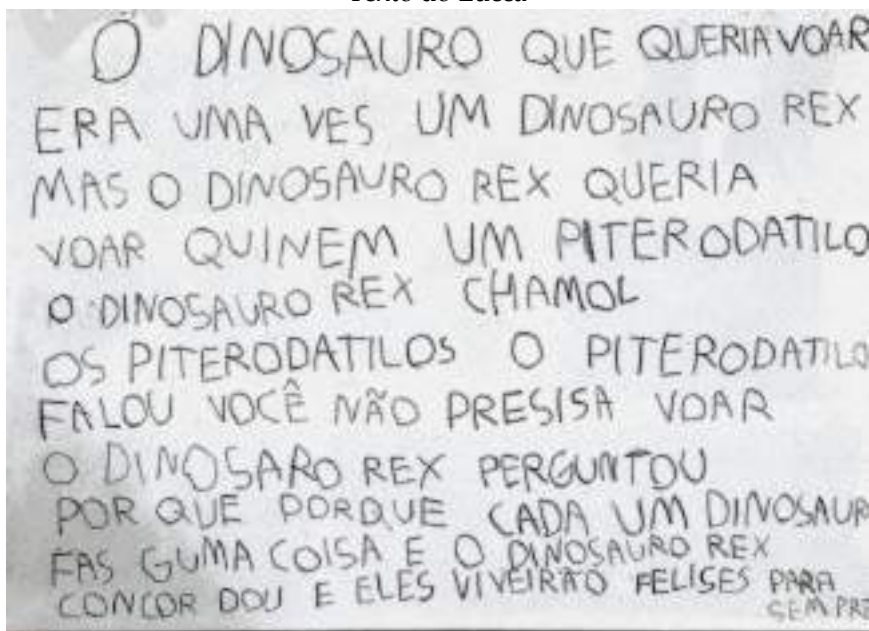 O DINOSAURO QUE QUERIA VOAR
ERA UMA VES UM DINOSAURO REX
MAS O DINOSAURO REX QUERIA
VOAR QUINEM UM PITERODATILO
O DINOSAURO REX CHAMOL
OS PITERODATILOS O PITERODATILO
FALOU VOCÊ NÃO PRESISA VOAR
O DINOSARO REX PERGUNTOU
POR QUE PORQUE CADA UM DINOSAUR
FAS GUMA COISA E O DINOSAURO REX
CONCOR DOU E ELES VIVEIRÃO FELISES PARA
SEMPRE